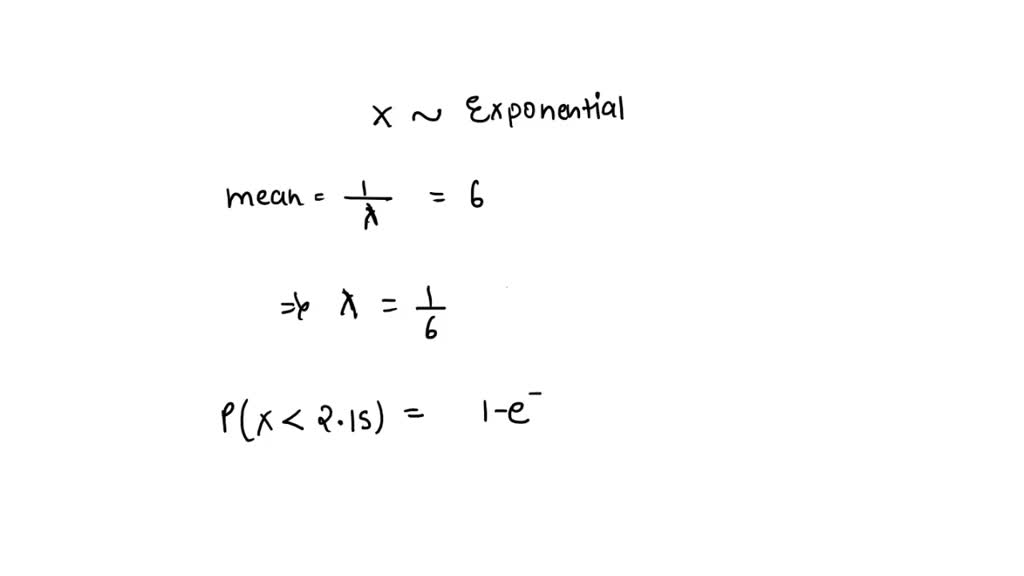 x ~ Exponential
mean = 1/λ = 6
⇒ λ = 1/6
P(x < 2.15) = 1-e⁻